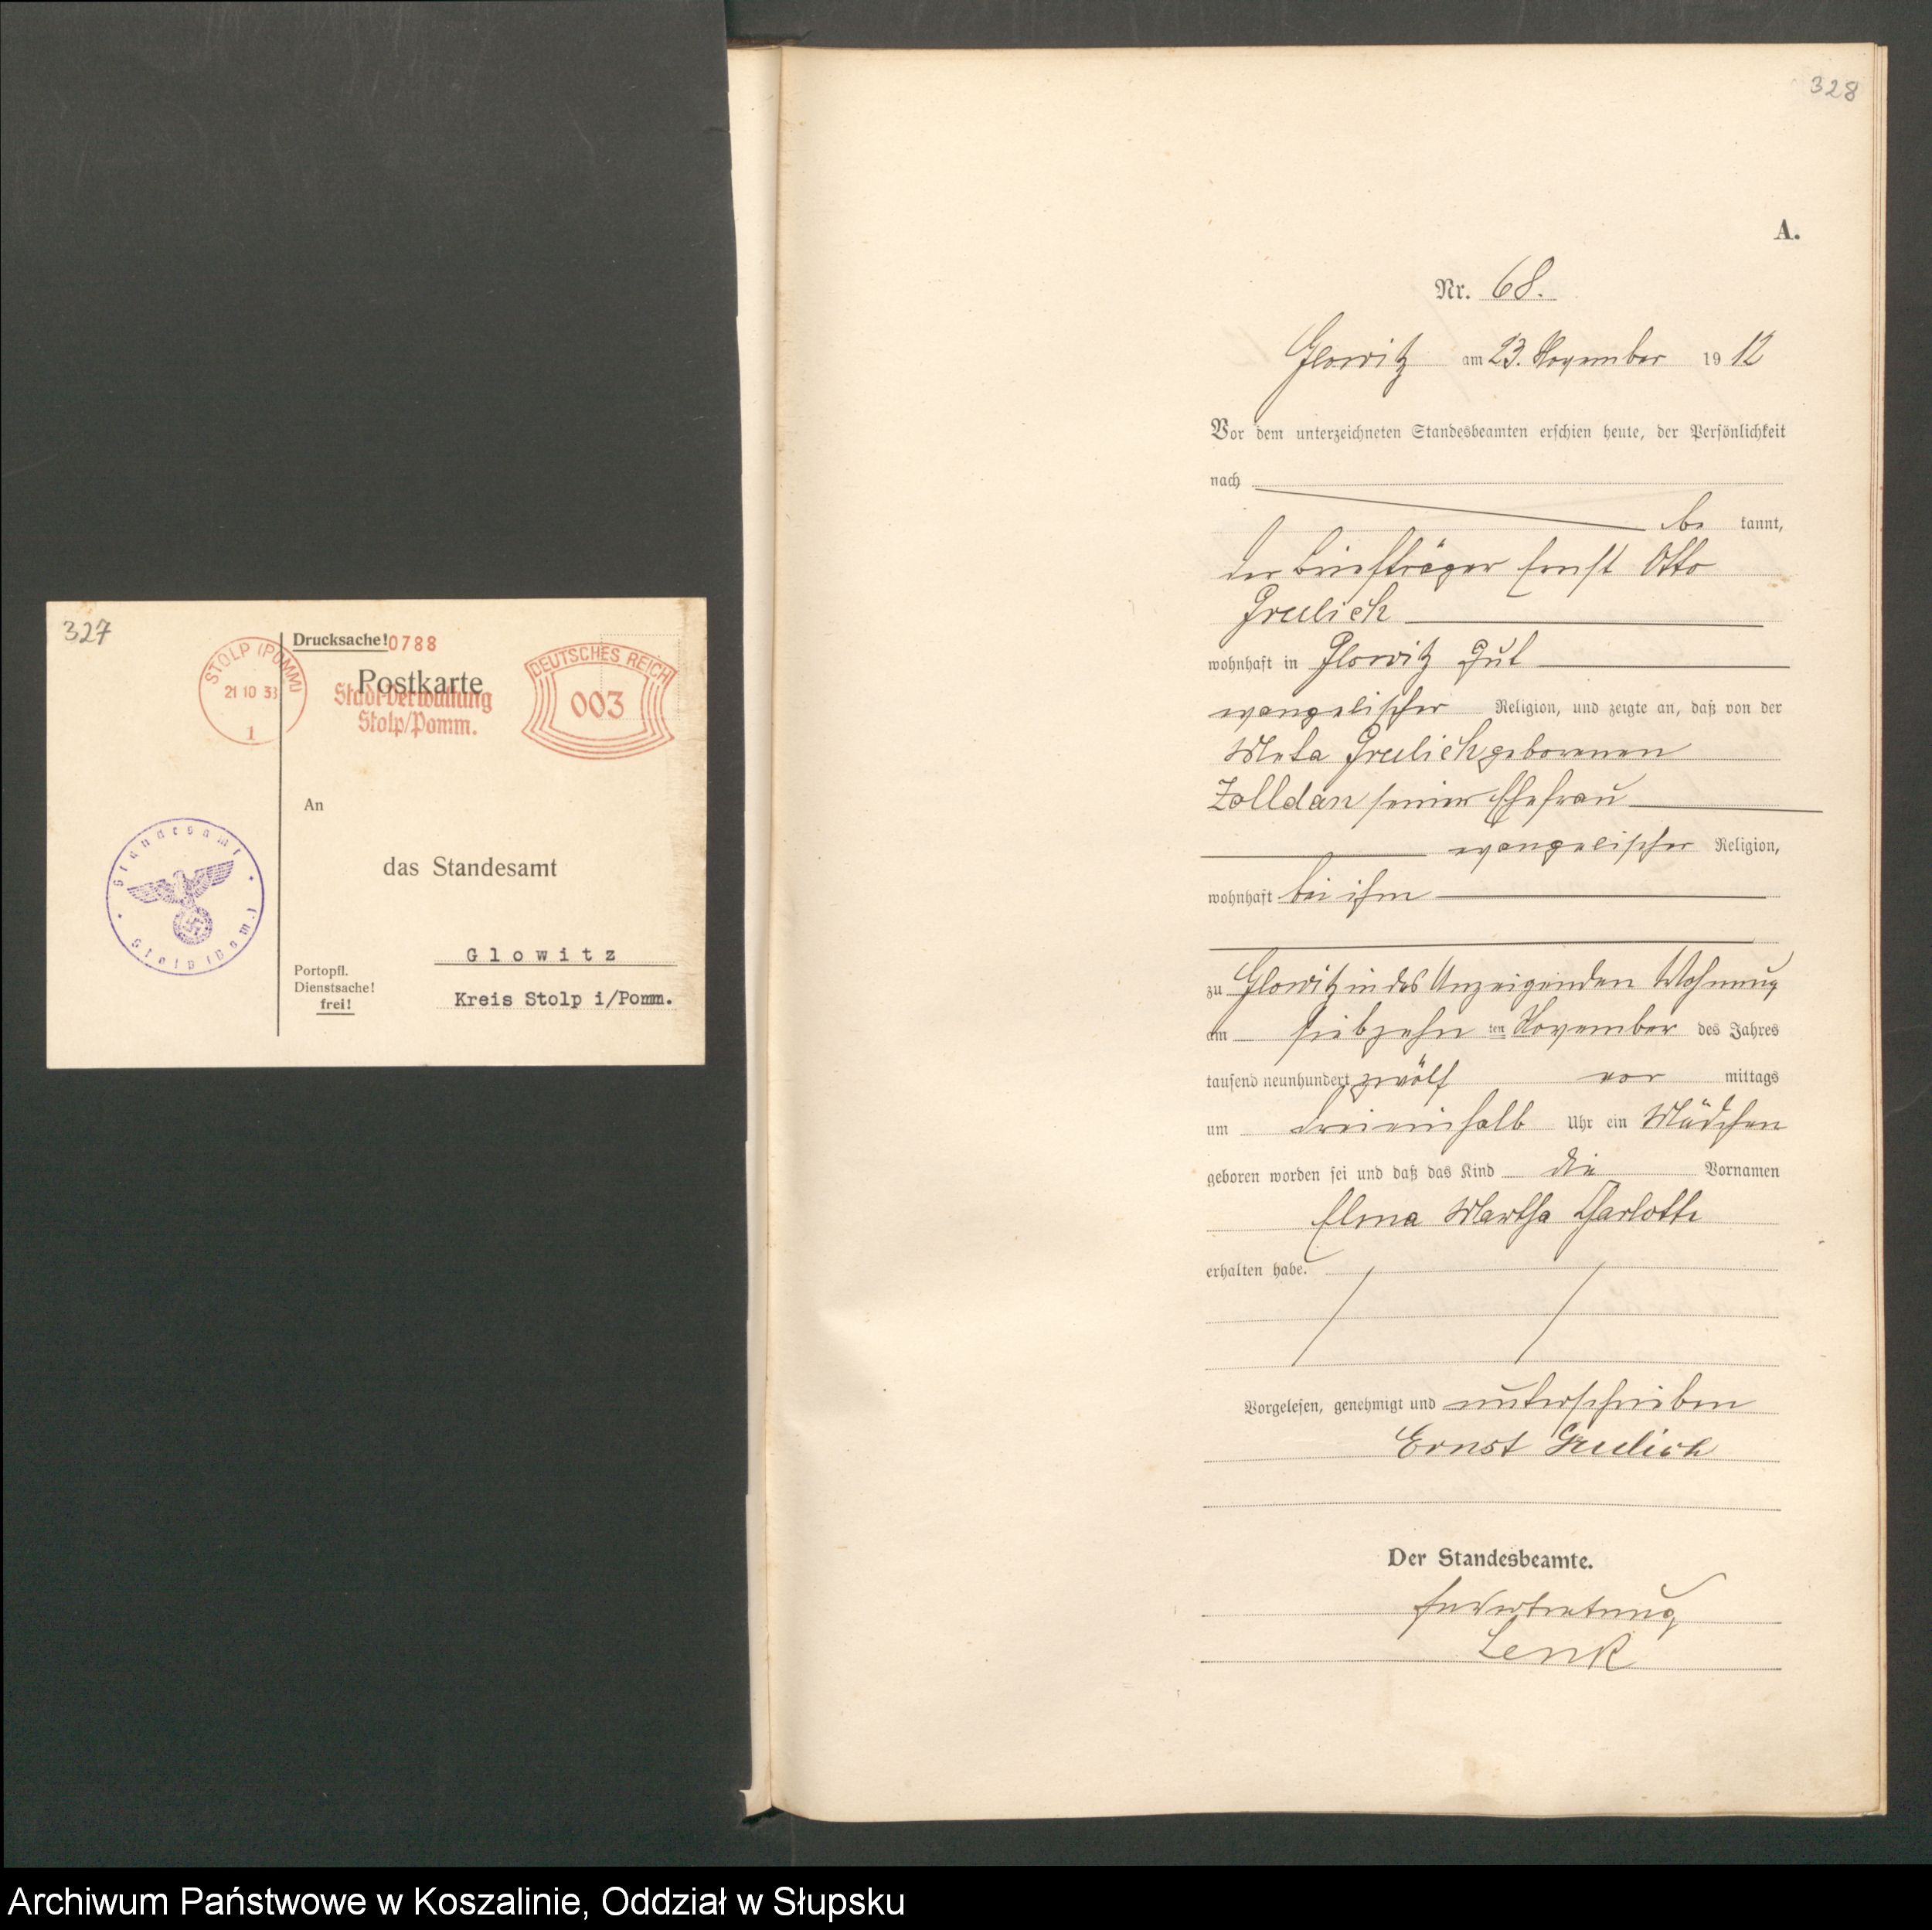 327
Drucksache!
0788
STOLP (POMM)
21 10 38
1
Postkarte
Stadt-Verwaltung
Stolp/Pomm.
DEUTSCHES REICH
003
An
das Standesamt
Glowitz
Kreis Stolp i/Pomm.
Portopfl.
Dienstsache!
frei!
Standesamt
Stolp (Pom.)
328
A.
Nr. 68.
Glowitz am 23. November 1912
Vor dem unterzeichneten Standesbeamten erschien heute, der Persönlichkeit
nach
be kannt,
der Briefträger Ernst Otto
Greulich
wohnhaft in Glowitz Gut
evangelischer Religion, und zeigte an, daß von der
Meta Greulich geborenen
Zolldan seiner Ehefrau
evangelischer Religion,
wohnhaft bei ihm
zu Glowitz in des Anzeigenden Wohnung
am siebzehn ten November des Jahres
tausend neunhundert zwölf vor mittags
um dreieinhalb Uhr ein Mädchen
geboren worden sei und daß das Kind die Vornamen
Martha Charlotte
erhalten habe.
Vorgelesen, genehmigt und unterschrieben
Ernst Greulich
Der Standesbeamte.
In Vertretung
Lenk
Archiwum Państwowe w Koszalinie, Oddział w Słupsku